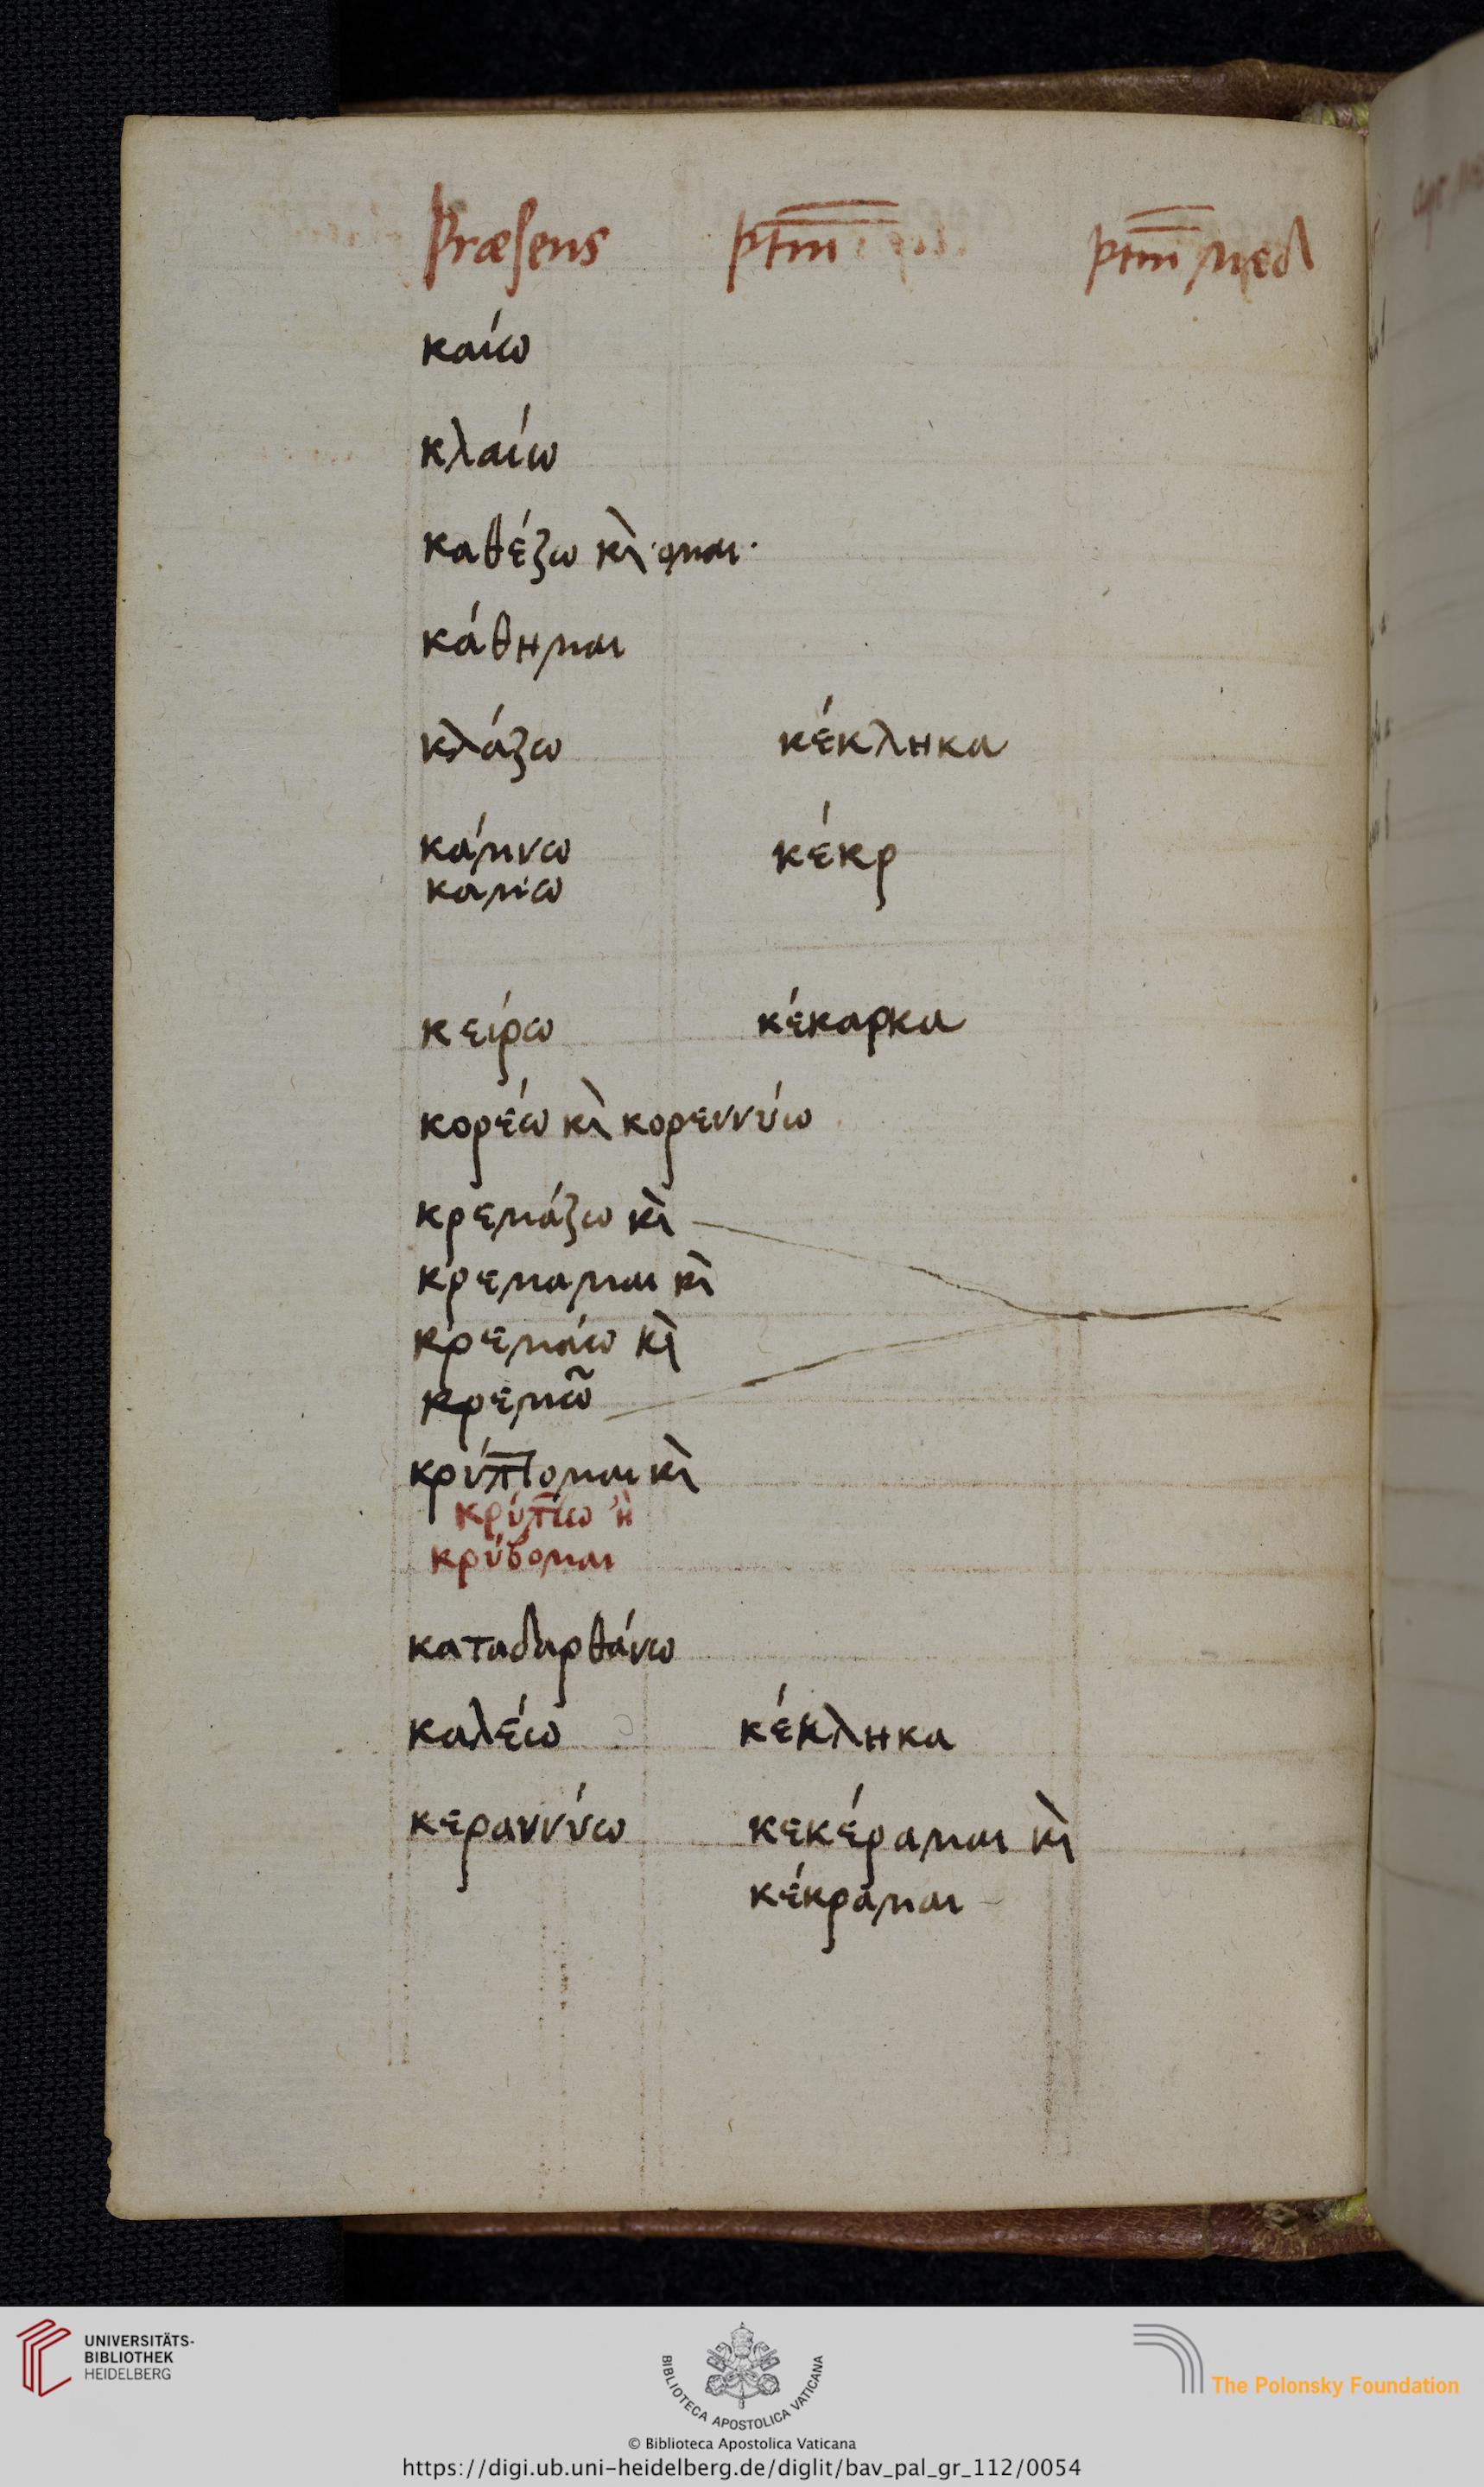 Præsens ptm ptm med
καίω
κλαίω
καθέζω κὶ ομαι·
κάθημαι
κλάζω κέκληκα
κάμνω κέκρ
καμω
κείρω κέκαρκα
κορέω κὶ κορεννύω
κρεμάζω κὶ
κρεμαμαι κὶ
κρεμάω κὶ
κρεμῶ
κρύπτομαι κὶ
κρύπτω ἢ
κρύβομαι
καταδαρθάνω
καλέω κέκληκα
κεραννύω κεκέραμαι κὶ
κέκραμαι
UNIVERSITÄTS-
BIBLIOTHEK
HEIDELBERG
BIBLIOTECA APOSTOLICA VATICANA
The Polonsky Foundation
© Biblioteca Apostolica Vaticana
https://digi.ub.uni-heidelberg.de/diglit/bav_pal_gr_112/0054